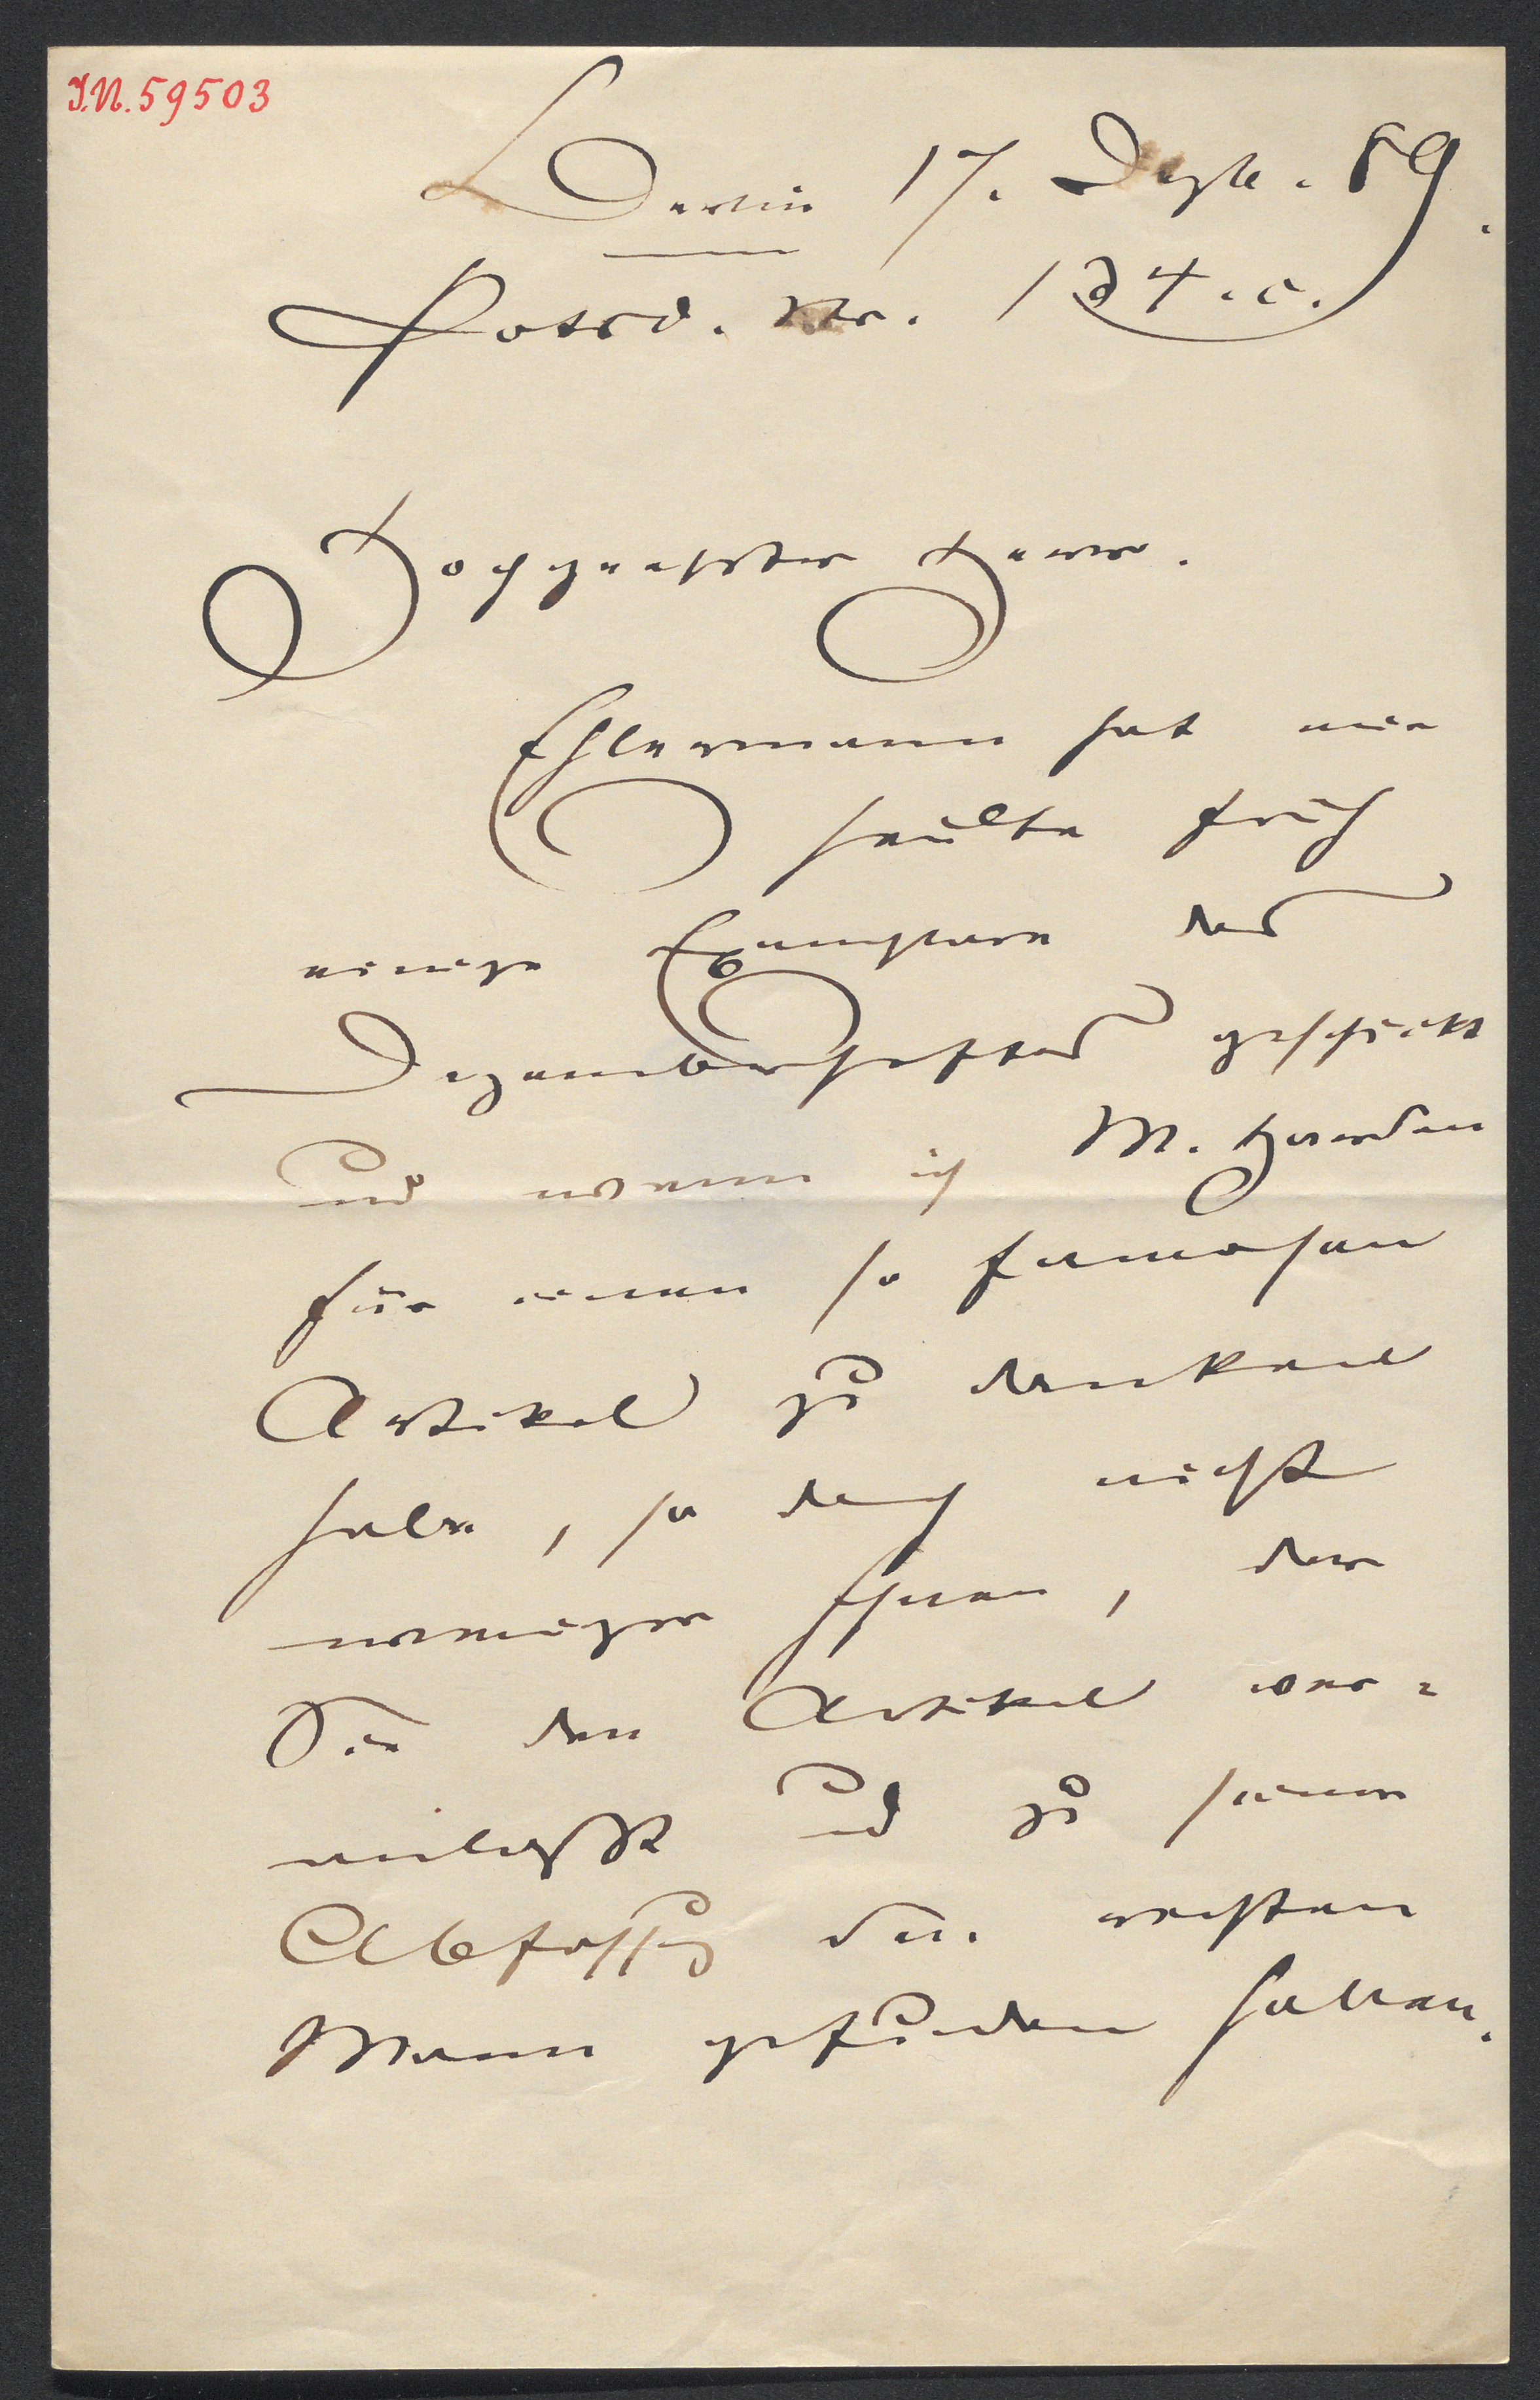 I.N. 59503
Berlin 17. Dezb. 89.
Potsd. Str. 134.c.
Hochgeehrter Herr.
Ehlermann hat mir
heute früh
einige Exemplare des
Dezemberheftes geschickt
und wenn ich M. Harden
für einen so famosen
Artikel zu danken
habe, so doch nicht
weniger Ihnen, der
Sie den Artikel ver-
anlaßt und zu seiner
Abfassung den rechten
Mann gefunden haben.